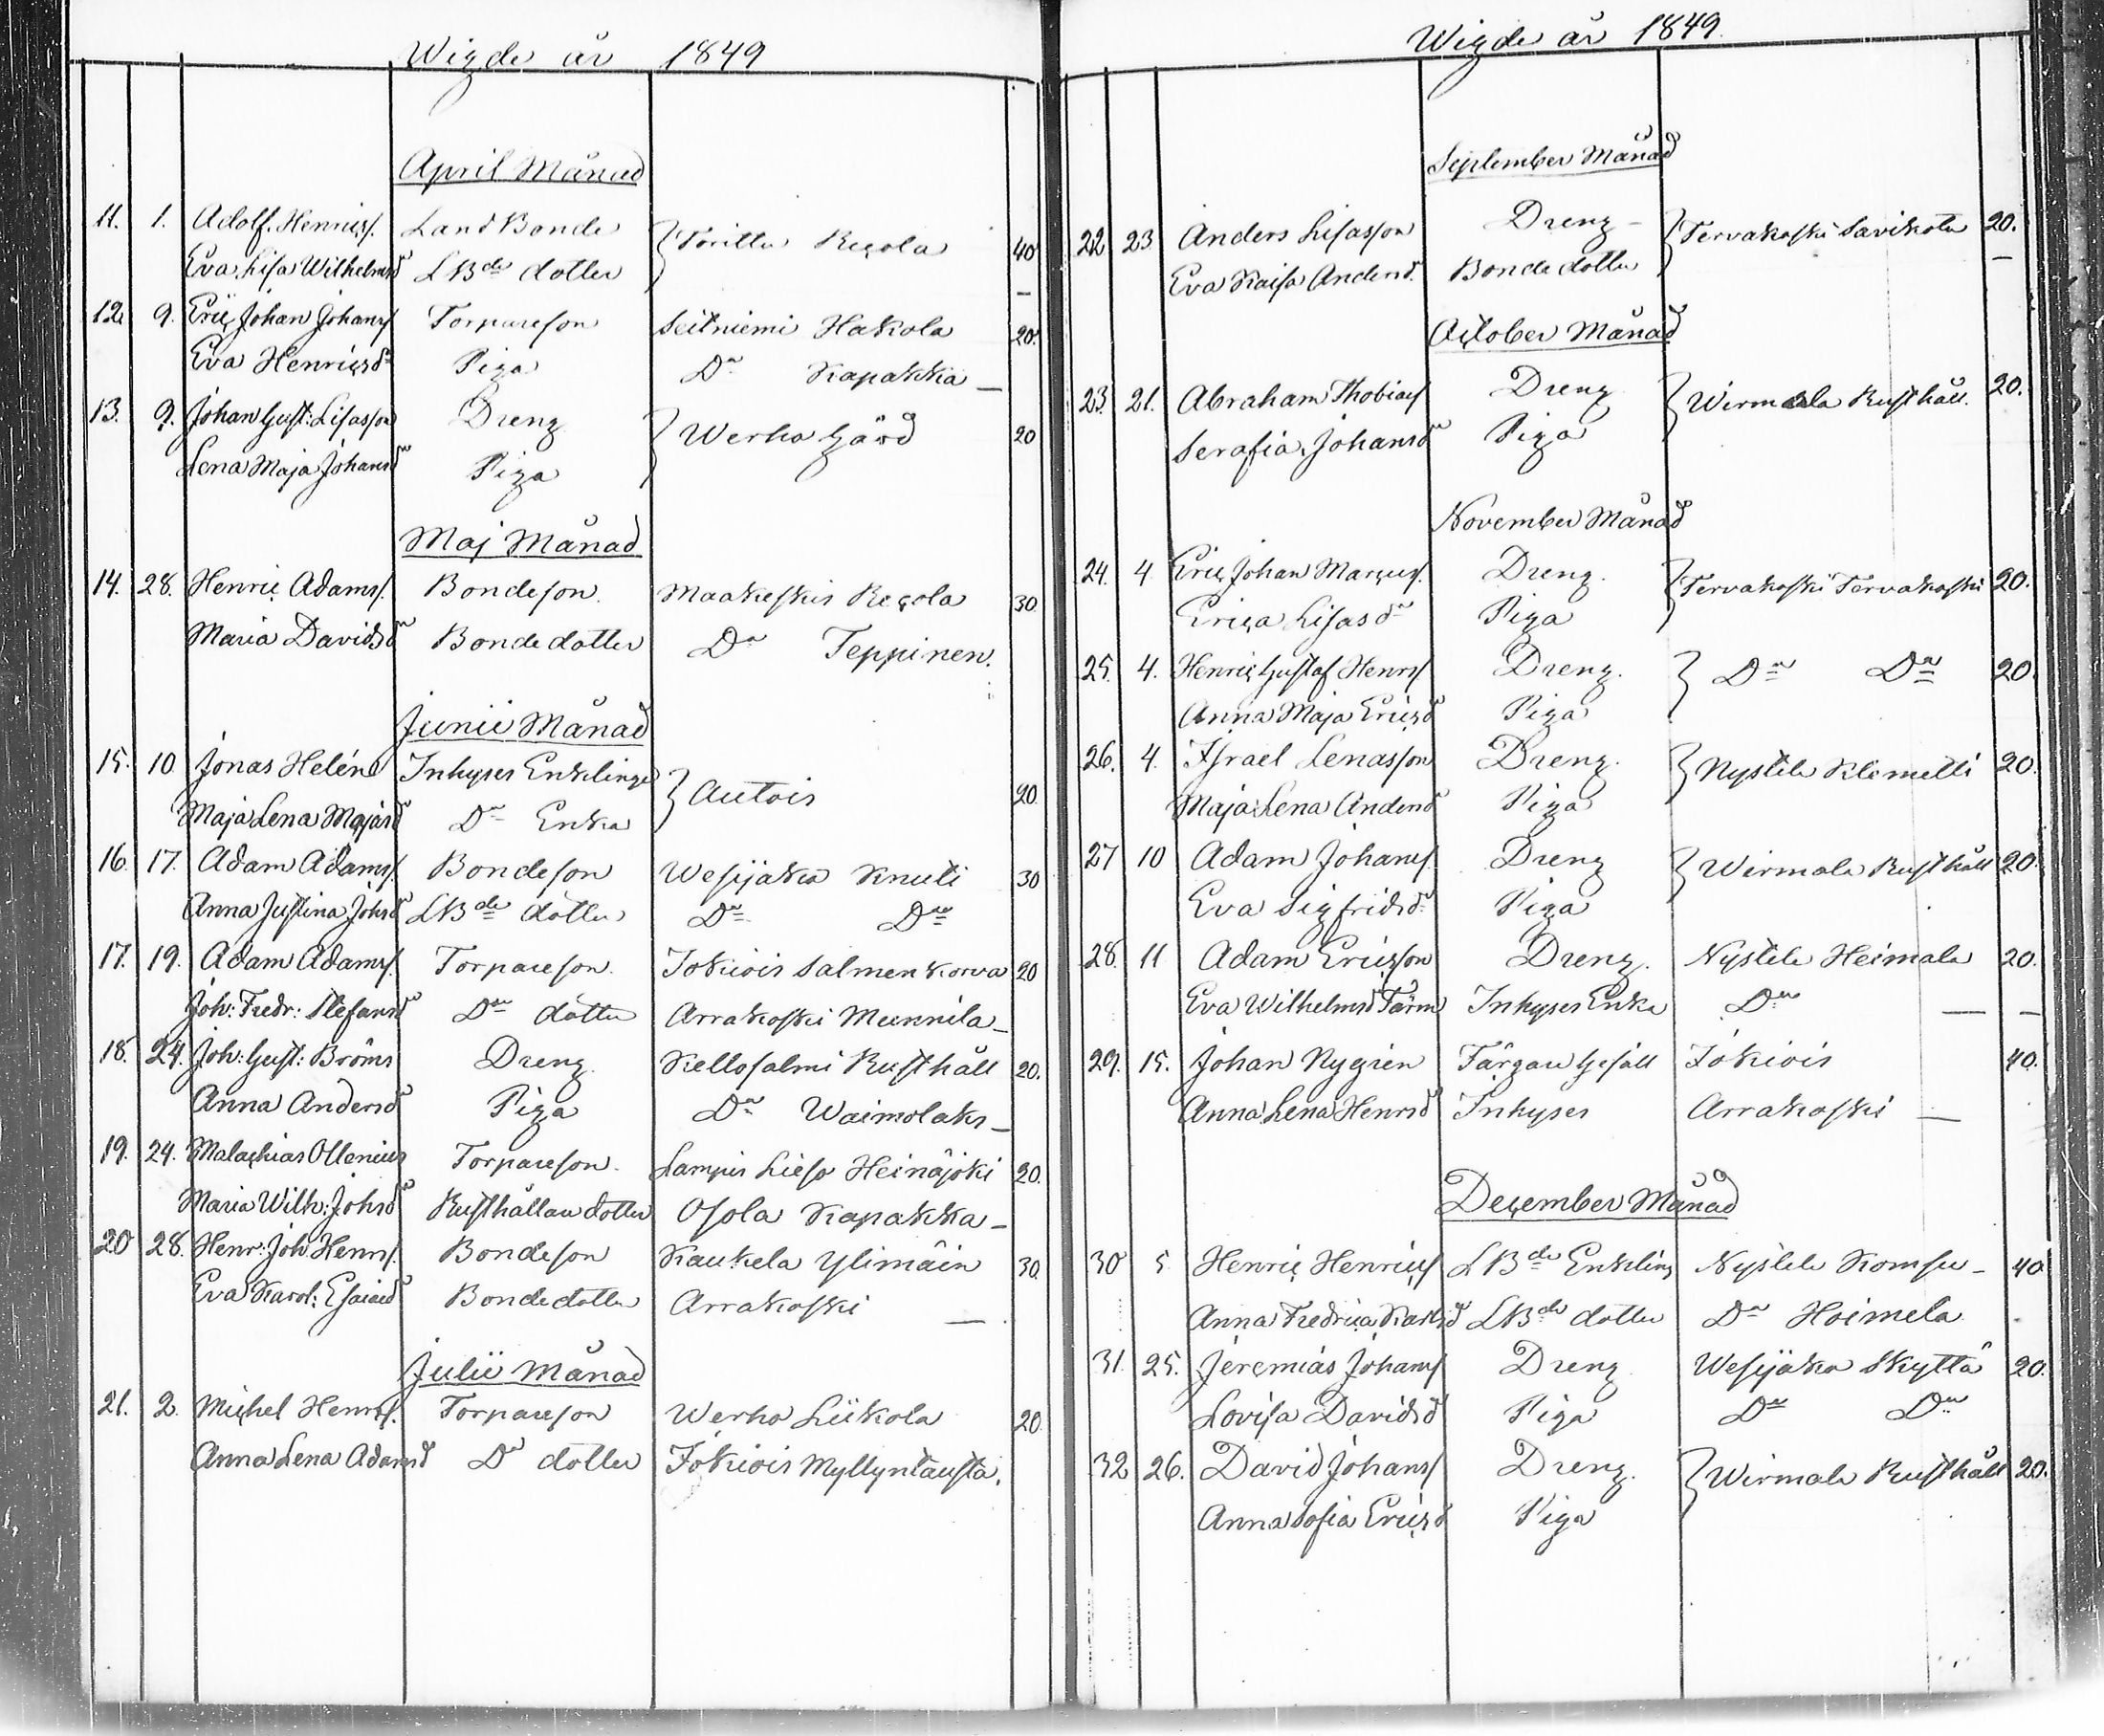 Wigde år 1849
April Månad
11. 1. Adolf Henrics. Land Bonde Torittu Recola 40
Eva Lisa Wilhelmsdr LBde dotter
12. 9. Eric Johan Johans Torpareson Seitniemi Hakola 20.
Eva Henricsdr Piga Do Kapakka —
13. 9. Johan Gust: Lisasson Dreng Werho Gård 20
Lena Maja Johansdr Piga
Maj Månad
14. 28. Henric Adams. Bondeson. Maakeskis Recola 30
Maria Davidsdr Bondedotter Do Teppinen.
Junii Månad
15. 10 Jonas Helén Inhyses Enkling Autois 20.
Maja Lena Majasdr Do Enka
16. 17. Adam Adams. Bondeson Wesijako Knuti 30
Anna Justina Johsdr LBde dotter Do Do
17. 19. Adam Adams. Torpareson. Jokiois Salmenkorva 20
Joh: Fredr: Stefansdr Do dotter Arrakoski Munnila —
18. 24. Joh: Gust: Broms Dreng Kellosalmi Rusthåll 20.
Anna Andersdr Piga Do Waimolaks —
19. 24. Malachias Ollenius Torpareson. Lampis Lieso Heinäjoki 20.
Maria Wilh: Johsdr Rusthållare dotter Osola Kapakka —
20 28. Henr: Joh: Henrs. Bondeson Kaukela Ylimäin 30.
Eva Karol: Esaiasdr Bondedotter Arrakoski —
Julii Månad
21. 2. Michel Henrs. Torpareson Werho Liikola 20.
Anna Lena Adamsd Do dotter Jokiois Myllyntausta.
Wigde år 1849.
September Månad
22 23 Anders Lisasson Dreng Tervakoski Savikota 20.
Eva Kaisa Andersd. Bondedotter —
October Månad
23. 21. Abraham Thobias Dreng Wirmala Rusthåll. 20.
Serafia Johansdr Piga
November Månad
24. 4 Eric Johan Marcus. Dreng. Tervakoski Tervakoski 20.
Erica Lisasdr Piga
25. 4. Henric Gustaf Henrs Dreng. Do Do 20.
Anna Maja Ericsd Piga
26. 4. Israel Lenasson Dreng. Nystela Klemetti 20.
Maja Lena Andersdr Piga
27 10 Adam Johans. Dreng Wirmala Rusthåll 20.
Eva Sigfridsdr Piga
28. 11 Adam Ericsson Dreng. Nystela Heimala 20.
Eva Wilhelmsd Färm Inhyses Enka Do —
29. 15. Johan Nygrén Färgare Gesäll Jokiois 40.
Anna Lena Henrsd Inhyses Arrakoski —
December Månad
30 5 Henric Henrics LBde Enkling Nystela Komsu — 40
Anna Fredrica Karlsd LBde dotter Do Hoimela
31. 25. Jeremias Johans Dreng Wesijako Skyttä 20.
Lovisa Davidsd Piga Do Do
32 26. David Johans Dreng. Wirmala Rusthåll 20.
Anna Sofia Ericsd Piga